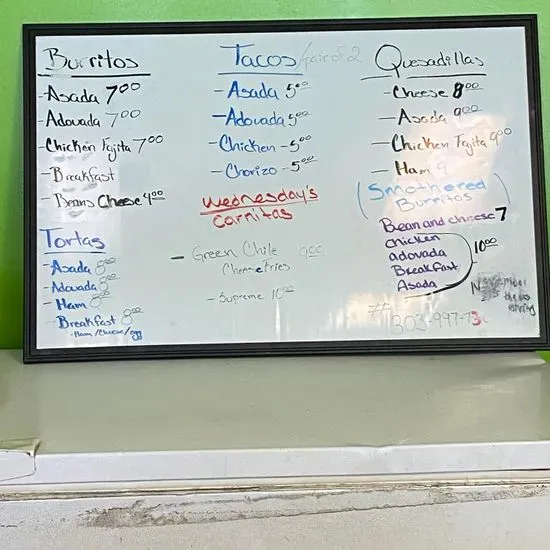 Burritos
- Asada 7.00
- Adovada 7.00
- Chicken Fajita 7.00
- Breakfast
- Beans Cheese 4.00
Tortas
- Asada 8.00
- Adovada 8.00
- Ham 8.00
- Breakfast 8.00
- Ham/Cheese/egg
Tacos/pair of 2
- Asada 5.00
- Adovada 5.00
- Chicken - 5.00
- Chorizo - 5.00
Wednesday's
Carnitas
- Green Chile 9.00
Cheese Fries
- Supreme 10.00
Quesadillas
- Cheese 8.00
- Asada 9.00
- Chicken Fajita 9.00
- Ham 9
(Smothered
Burritos)
Bean and cheese 7
chicken
adovada 10.00
Breakfast
Asada
#
303-997-73